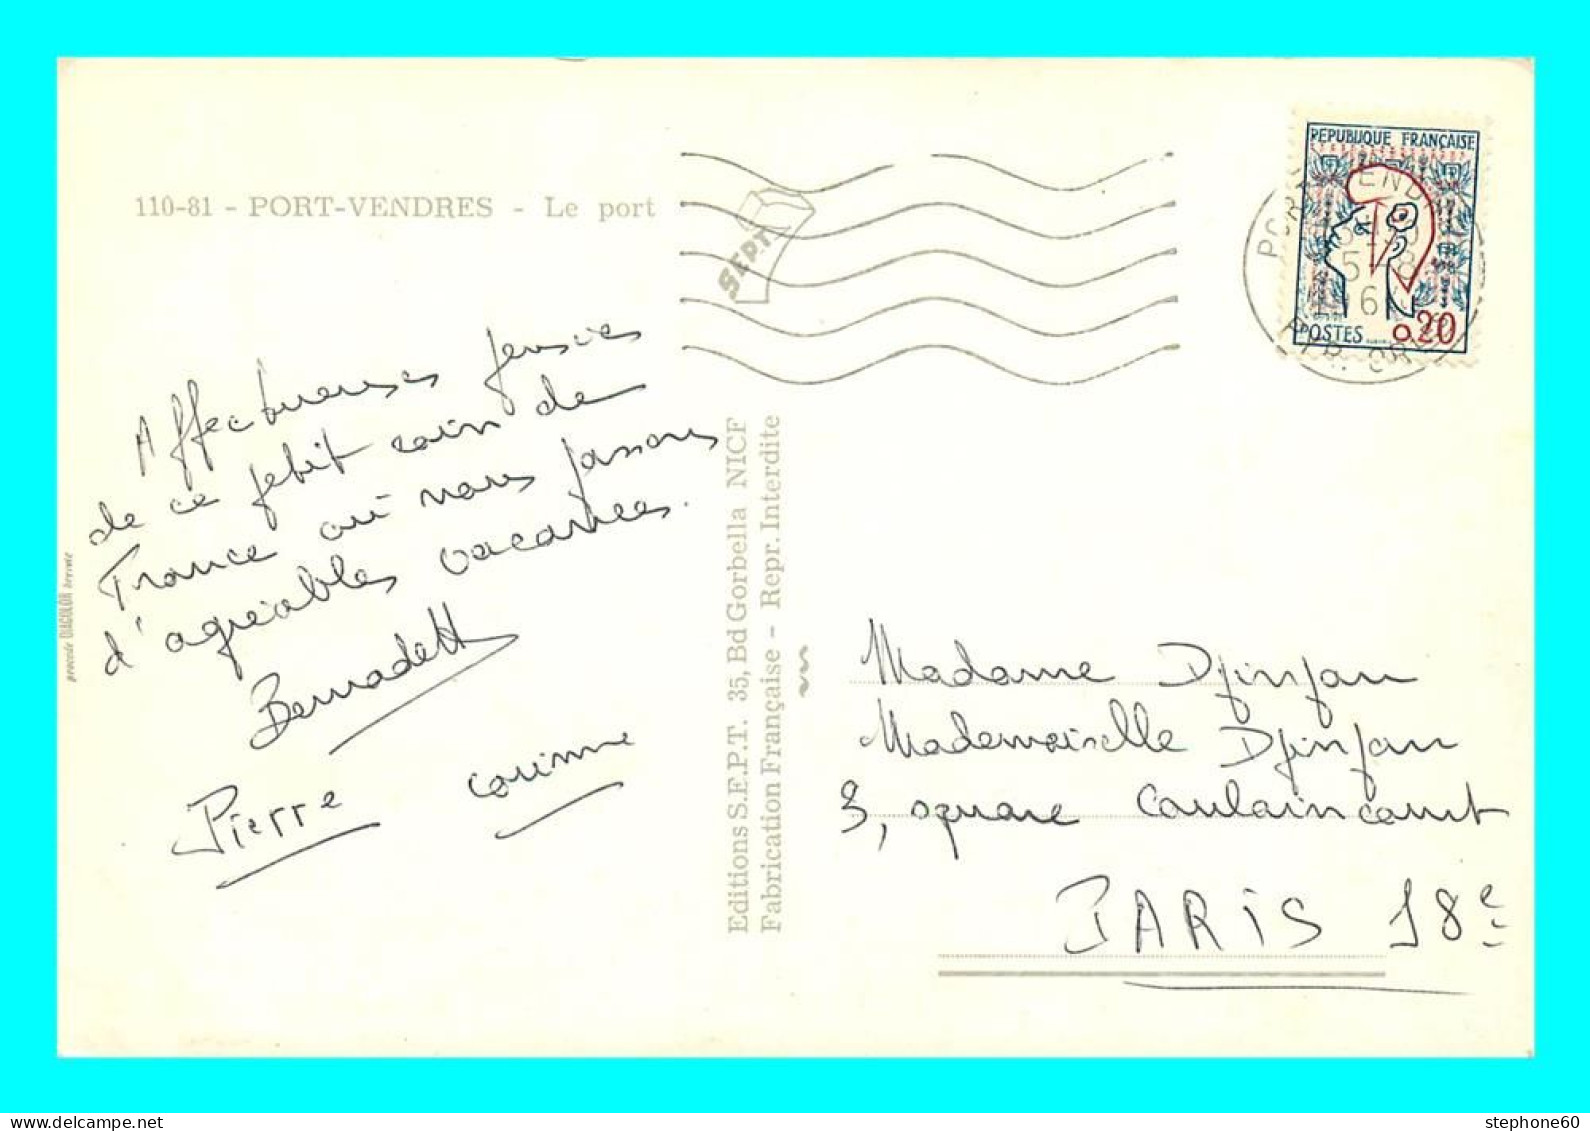 110-81 - PORT-VENDRES - Le port
S.E.P.T.
REPUBLIQUE FRANÇAISE
POSTES
0,20
Affectueuses pensées
de ce petit coin de
France où nous passons
d'agréables vacances.
Bernadett
Pierre
Corinne
procédé DIACOLOR
Editions S.E.P.T. 35, Bd Gorbella NICE
Fabrication Française - Repr. Interdite
Madame Djinjan
Mademoiselle Djinjan
3, square Caulaincourt
PARIS 18e
stephone60